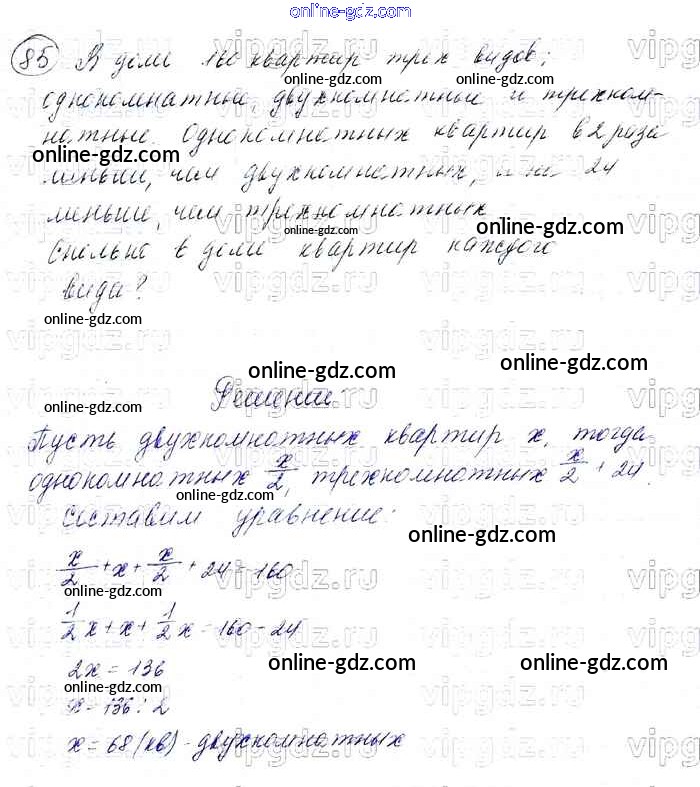 online-gdz.com
85 В доме 160 квартир трех видов:
online-gdz.com
однокомнатные, двухкомнатные и трехком-
online-gdz.com
натные. Однокомнатных квартир в 2 раза
online-gdz.com
меньше, чем двухкомнатных, и на 24
online-gdz.com
меньше, чем трехкомнатных
online-gdz.com
online-gdz.com
Сколько в доме квартир каждого
вида?
vipgdz.ru
online-gdz.com
online-gdz.com
online-gdz.com
Решение:
online-gdz.com
Пусть двухкомнатных квартир x, тогда
однокомнатных x/2, трехкомнатных x/2 + 24.
online-gdz.com
online-gdz.com
Составим уравнение:
online-gdz.com
x/2 + x + x/2 + 24 = 160
online-gdz.com
online-gdz.com
1/2 x + x + 1/2 x = 160 - 24
online-gdz.com
2x = 136
online-gdz.com
online-gdz.com
x = 136 : 2
x = 68 (кв) - двухкомнатных
online-gdz.com
online-gdz.com